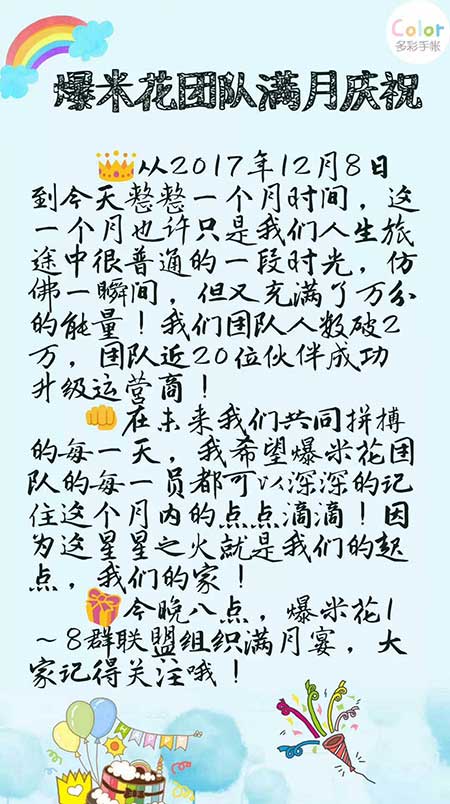 Color
多彩手帐
爆米花团队满月庆祝
从2017年12月8日
到今天整整一个月时间，这
一个月也许只是我们人生旅
途中很普通的一段时光，仿
佛一瞬间，但又充满了万分
的能量！我们团队人数破2
万，团队近20位伙伴成功
升级运营商！
在未来我们共同拼搏
的每一天，我希望爆米花团
队的每一员都可以深深的记
住这个月内的点点滴滴！因
为这星星之火就是我们的起
点，我们的家！
今晚八点，爆米花1
~8群联盟组织满月宴，大
家记得关注哦！